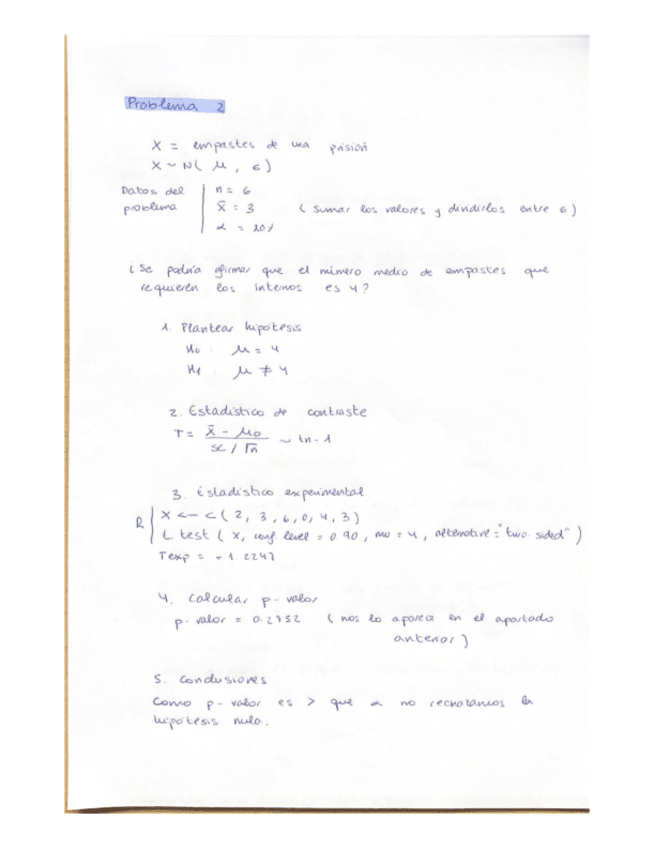 Problema 2
X = empastes de una prisión
X ~ N( μ , σ )
Datos del problema
n = 6
x̄ = 3 ( sumar los valores y dividirlos entre 6 )
α = 10%
¿ Se podría afirmar que el número medio de empastes que
requieren los internos es 4?
1. Plantear hipótesis
H0 : μ = 4
H1 : μ ≠ 4
2. Estadístico de contraste
T = x̄ - μo / sc / √n ~ tn-1
3. Estadístico experimental
R
X <- c ( 2, 3, 6, 0, 4, 3 )
t. test ( x, conf. level = 0.90, mu = 4, alternative = "two. sided" )
Texp = - 1.2247
4. Calcular p-valor
p-valor = 0.2752 ( nos lo aparece en el apartado
anterior )
5. Conclusiones
Como p-valor es > que α no rechazamos la
hipótesis nula.